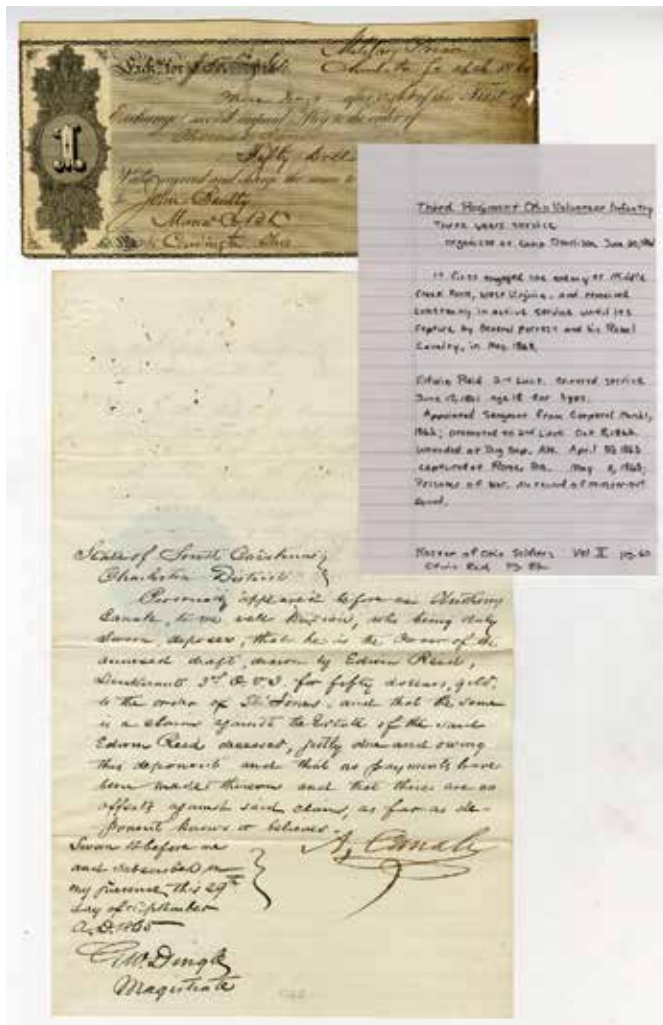 Military Prison
Exch. for
Three days after sight of this First of
Exchange second unpaid Pay to the order of
Fifty Dollars
Value received and charge the same to
To John Reilly
No. Covington
1
Third Regiment Ohio Volunteer Infantry
Three years service
organized at Camp Dennison June 20, 1861
It first engaged the enemy at Middle
Creek Fork, West Virginia, and remained
constantly in active service until its
capture by General Forrest and his Rebel
Cavalry, in May 1863.
Edwin Reid 2nd Lieut. entered service
June 17, 1861 age 18 for 3 yrs.
Appointed Sergeant from Corporal
1862; promoted to 2nd Lieut. Oct 8, 1862
wounded at Dug Gap, Ala. April 30, 1863
captured at Rome, Ga. May 3, 1863;
Prisoner of War. No record of muster-out
found.
Roster of Ohio Soldiers Vol II pg. 60
Edwin Reid
State of South Carolina
Charleston District
Personally appeared before me Anthony
Canale, to me well known, who being duly
sworn, deposes, that he is the owner of the
annexed draft, drawn by Edwin Reed,
Lieutenant 3d O.V.I. for fifty dollars, gold,
to the order of Th: Jones. and that the same
is a claim against the Estate of the said
Edwin Reed deceased, justly due and owing
this deponent and that no payments have
been made thereon and that there are no
offsets against said claim, as far as de-
ponent knows or believes.
Sworn to before me
A. Canale
and subscribed in
my presence this 29th
day of September
A.D. 1865
G.W. Dingle
Magistrate